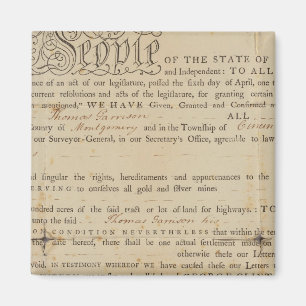 People OF THE STATE OF
and Independent: TO ALL
ence of an act of our legislature, passed the sixth day of April, one
current resolutions and acts of the legislature, for granting certain
mentioned," WE HAVE Given, Granted and Confirmed
Thomas Jamson ALL
County of Montgomery and in the Township of
our Surveyor-General, in our Secretary's Office, agreeable to law
and singular the rights, hereditaments and appurtenances to the
ERVING to ourselves all gold and silver mines
hundred acres of the said tract or lot of land for highways. TO
unto the said Thomas Jamson his
ON CONDITION NEVERTHELESS that within the
date hereof, there shall be one actual settlement made
otherwise these our Letters
void. IN TESTIMONY WHEREOF we have caused these our Letters